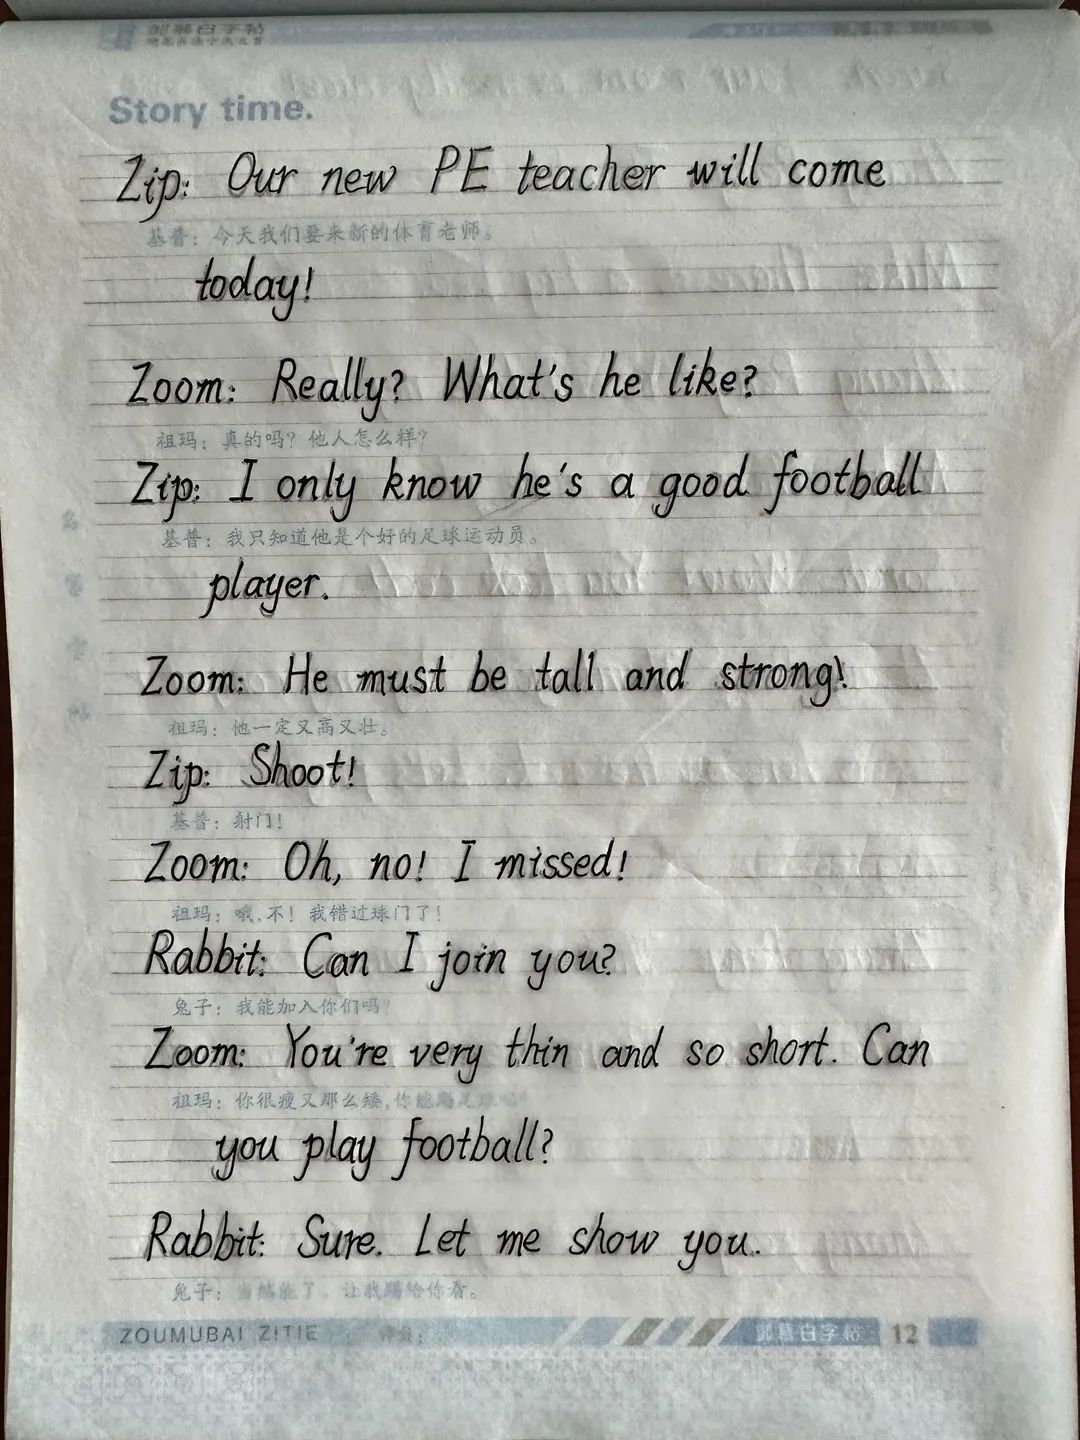 Story time.
Zip: Our new PE teacher will come
基普：今天我们要来新的体育老师。
today!
Zoom: Really? What's he like?
祖玛：真的吗？他人怎么样？
Zip: I only know he's a good football
基普：我只知道他是个好的足球运动员。
player.
Zoom: He must be tall and strong!
祖玛：他一定又高又壮。
Zip: Shoot!
基普：射门！
Zoom: Oh, no! I missed!
祖玛：哦,不！我错过球门了！
Rabbit: Can I join you?
兔子：我能加入你们吗？
Zoom: You're very thin and so short. Can
祖玛：你很瘦又那么矮,你能踢足球吗？
you play football?
Rabbit: Sure. Let me show you.
兔子：当然能了。让我踢给你看。
ZOUMUBAI ZITIE 评分： 邹慕白字帖 12